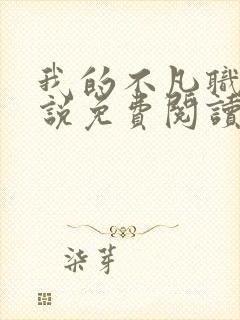 我的不凡職
說免費閱讀
柒芽